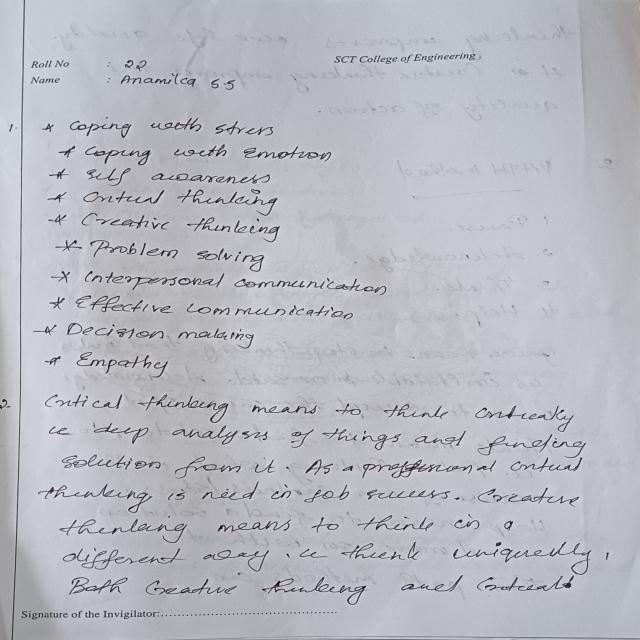 SCT College of Engineering
Roll No : 22
Name : Anamika S.S
1. * Coping with stress
* Coping with Emotion
* Self awareness
* Critical thinking
* Creative thinking
* Problem solving
* Interpersonal communication
* Effective communication
* Decision making
* Empathy
2. Critical thinking means to think critically
ie deep analysis of things and finding
solution from it. As a proffesional critical
thinking is need in job success. Creative
thinking means to think in a
different way. ie think uniquedly,
Both Creative thinking and Critical
Signature of the Invigilator: